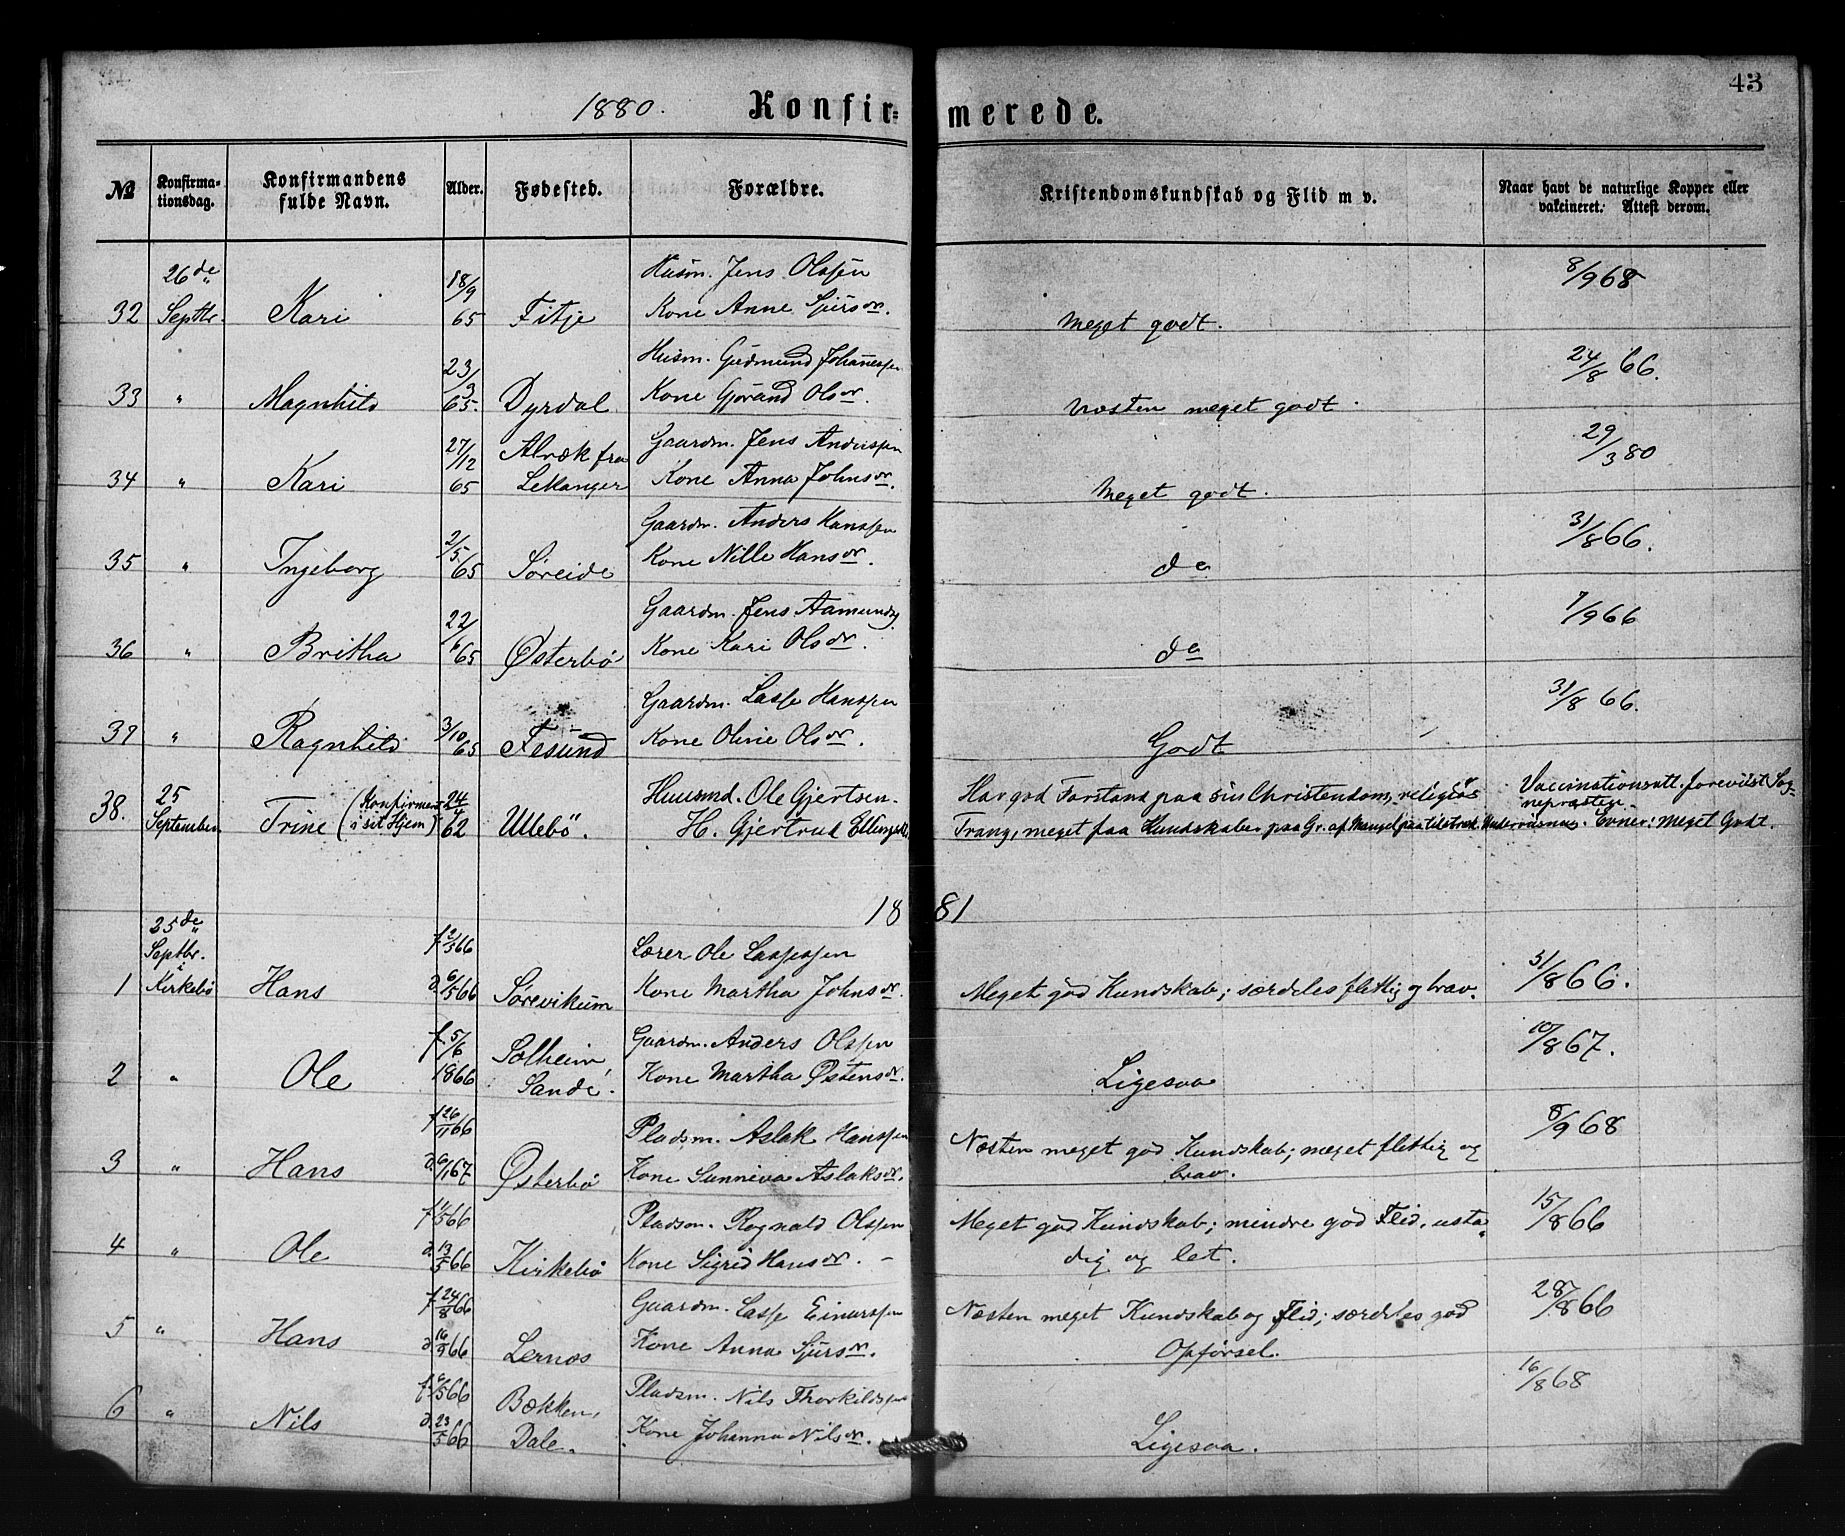 43
1880. Konfirmerede.
№ Konfirmationsdag. Konfirmandens fulde Navn. Alder. Fødested. Forældre. Kristendomskundskab og Flid m v. Naar havt de naturlige Kopper eller vakcineret. Attest derom.
26de 18/9 Husm. Jens Olssen 8/9 68
32 Septbr. Kari 65 Fitje Kone Anne Sjursdr. Meget godt.
23/3 Husm. Gudmund Johannessen 24/8 66.
33 " Magnhild 65. Dyrdal Kone Gjørand Olsdr. Næsten meget godt.
27/12 Alræk fra Gaardm. Jens Anderssen 29/3 80
34 " Kari 65 Lekanger Kone Anna Johnsdr. Meget godt.
2/5 Gaardm. Anders Hanssen 31/8 66.
35 " Ingeborg 65 Søreide Kone Nille Hansdr. do
22/6 Gaardm. Jens Aamunds. 7/9 66
36 " Britha 65 Østerbø Kone Kari Olsdr. do
Gaardm. Lasse Hanssen 31/8 66.
37 " Ragnhild 3/10 65 Fesund Kone Oline Olsdr. Godt
25 (Konfirmeret 24/ Huusmd. Ole Gjertsen. Har god Forstand paa sin Christendom, religiøs Vaccinationsatt. forevist Sognepræsten.
38. September Trine i sit Hjem) 62 Ullebø. H. Gjertrud Ellingsdtr Trang, meget faa Kundskaber paa Gr. af Mangel paa tilstræk. Undervisning. Evner: Meget Godt.
1881
25de f 2/5 66
Septbr. Lærer Ole Lassessen 31/8 66.
i
1 Kirkebø Hans d. 6/5 66 Sørevikum Kone Martha Johnsdr. Meget god Kundskab; særdeles flittig og brav.
f 5/6 Solheim, Gaardm. Anders Olssen 10/8 67.
2 " Ole 1866 Sande. Kone Martha Østensdr. Ligesaa
f 26/11 66 Pladsm. Aslak Hanssen Næsten meget god Kundskab; meget flittig og 8/9 68
3 " Hans d. 6/1 67 Østerbø Kone Sunneva Aslaksdr. brav.
f 1/5 66 Pladsm. Rognald Olssen Meget god Kundskab; mindre god Flid, usta 15/8 66
4 " Ole d. 13/5 66 Kirkebø Kone Sigrid Hansdr. dig og let.
f 24/8 66 Gaardm. Lasse Einarssen Næsten meget Kundskab og Flid; særdeles god 28/8 66
5 " Hans d. 16/9 66 Lernæs Kone Anna Sjursdr. Opførsel.
f 6/5 66 Bækken, Pladsm. Nils Thorkildssen 16/8 68
6 " Nils d. 23/5 66 Dale. Kone Johanna Nilsdr. Ligesaa.